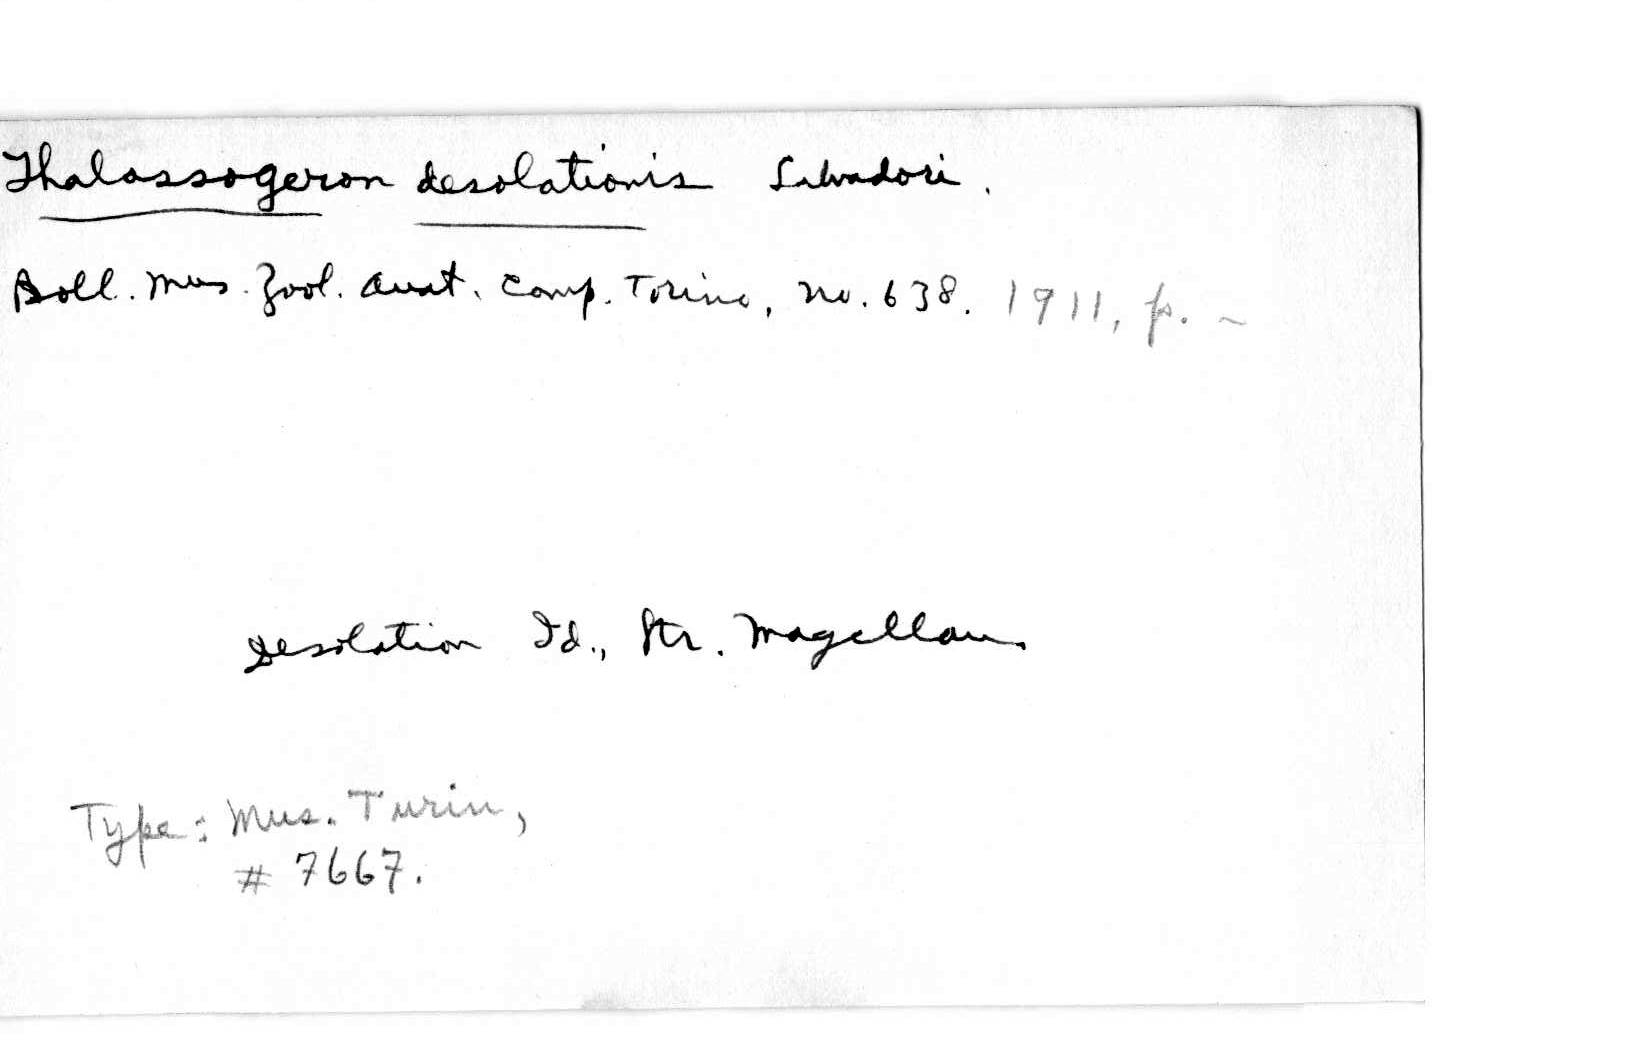 Thalassogeron desolationis Salvadori.
Boll. Mus. Zool. Anat. Comp. Torino, No. 638. 1911, p. ~
Desolation Id., Str. Magellan.
Type: Mus. Turin,
# 7667.